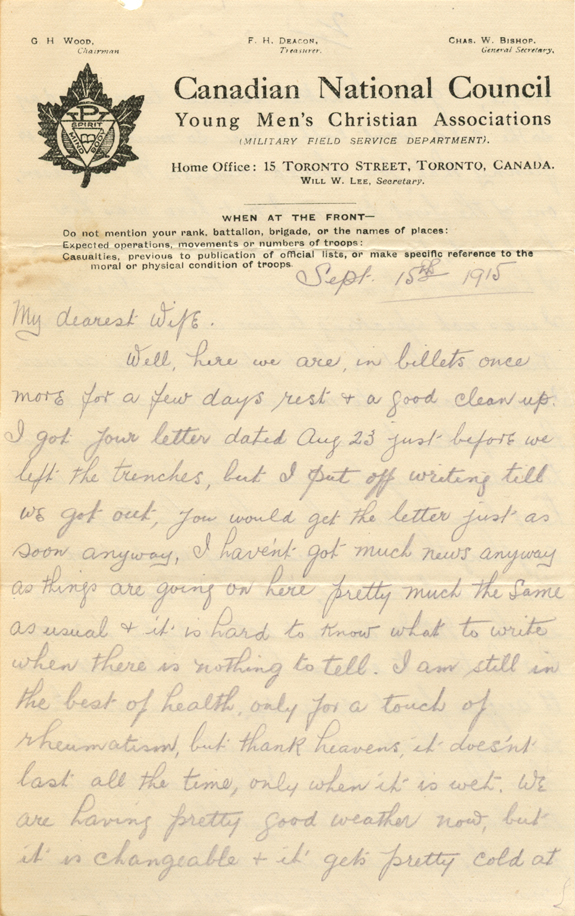 G H WOOD,
Chairman
F. H. DEACON,
Treasurer.
CHAS. W. BISHOP.
General Secretary.
SPIRIT
MIND
BODY
Canadian National Council
Young Men's Christian Associations
(MILITARY FIELD SERVICE DEPARTMENT).
Home Office: 15 TORONTO STREET, TORONTO, CANADA.
WILL W. LEE, Secretary.
WHEN AT THE FRONT—
Do not mention your rank, battalion, brigade, or the names of places:
Expected operations, movements or numbers of troops:
Casualties, previous to publication of official lists, or make specific reference to the
moral or physical condition of troops
Sept. 15th 1915
My dearest Wife.
Well, here we are, in billets once
more for a few days rest + a good clean up.
I got your letter dated Aug 23 just before we
left the trenches, but I put off writing till
we got out, you would get the letter just as
soon anyway, I haven't got much news anyway
as things are going on here pretty much the same
as usual + it is hard to know what to write
when there is nothing to tell. I am still in
the best of health, only for a touch of
rheumatism, but thank heavens, it does'nt
last all the time, only when it is wet. We
are having pretty good weather now, but
it is changeable + it gets pretty cold at